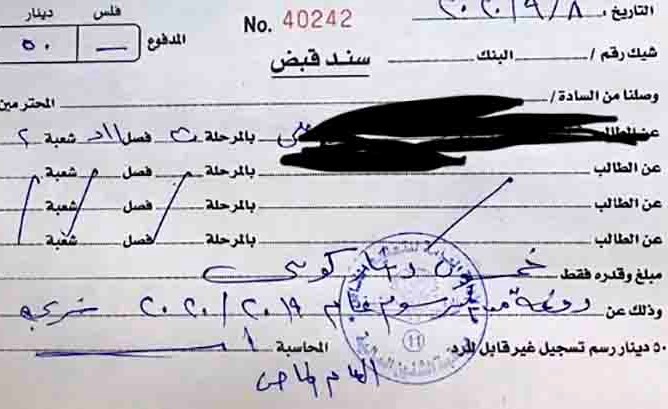 التاريخ : ٢٠٢٠/٩/٨
فلس دينار
No. 40242
المدفوع — ٥٠
سند قبض
شيك رقم / البنك
وصلنا من السادة / المحترمين
عن الطالب بالمرحلة ث فصل شعبة ٢
عن الطالب بالمرحلة فصل شعبة
عن الطالب بالمرحلة فصل شعبة
عن الطالب بالمرحلة فصل شعبة
مبلغ وقدره فقط خمسون دينار كويتي
وذلك عن دفعة من رسوم عام ٢٠١٩ / ٢٠٢٠
٥٠ دينار رسم تسجيل غير قابل للرد. المحاسبة
العام